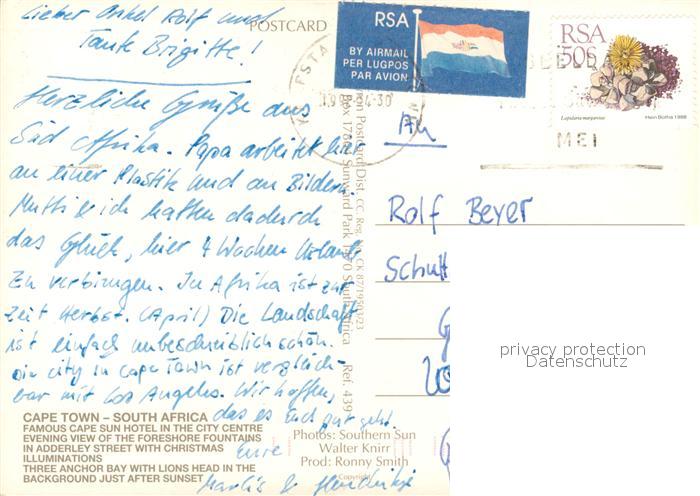 Lieber Onkel Rolf und
Tante Brigitte!
POSTCARD
RSA
BY AIRMAIL
PER LUGPOS
PAR AVION
RSA
50c
Hein Botha 1988
MEI
Herzliche Grüße aus
Süd Afrika. Papa arbeitet hier
an einer Plastik und an Bildern.
Mutti & ich hatten dadurch
das Glück, hier 4 Wochen Urlaub
zu verbringen. In Afrika ist zur
Zeit Herbst. (April) Die Landschaft
ist einfach unbeschreiblich schön.
Die City in Cape Town ist vergleich-
bar mit Los Angeles. Wir hoffen,
das es Euch gut geht.
Eure
An
Rolf Beyer
Schutt
privacy protection
Datenschutz
Postcard Dist. CC. Reg. No. CK 87/19503/23
Sunward Park 1470 South Africa Ref. 439
CAPE TOWN – SOUTH AFRICA
FAMOUS CAPE SUN HOTEL IN THE CITY CENTRE
EVENING VIEW OF THE FORESHORE FOUNTAINS
IN ADDERLEY STREET WITH CHRISTMAS
ILLUMINATIONS
THREE ANCHOR BAY WITH LIONS HEAD IN THE
BACKGROUND JUST AFTER SUNSET
Photos: Southern Sun
Walter Knirr
Prod: Ronny Smith
Copyright